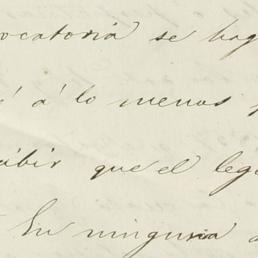 ocatoria se hag
á lo menos
ibir que el leg
En ninguna